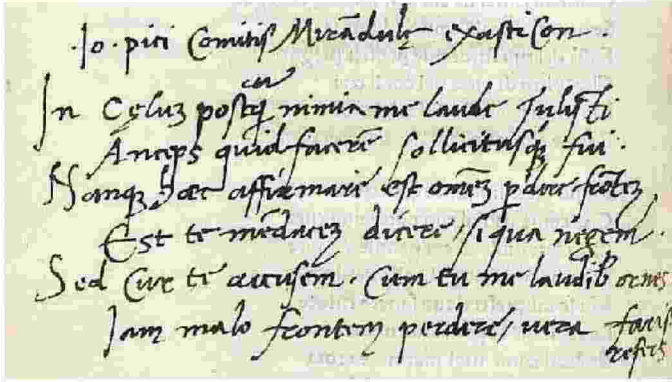 ·Io· pici Comitis Mirādulę exasticon·
In Cęluȝ postq̄ nimia me laude tulisti
Anceps quid facerē sollicitusq; fui·
Nanq; hæc affirmare est omēȝ ꝑdere frōteȝ
Est te mēdaceȝ dicere/ siqua negem·
Sed Cur te accusem· Cum tu me laudibꝰ ornes
Iam malo frontem perdere/ vera
refers